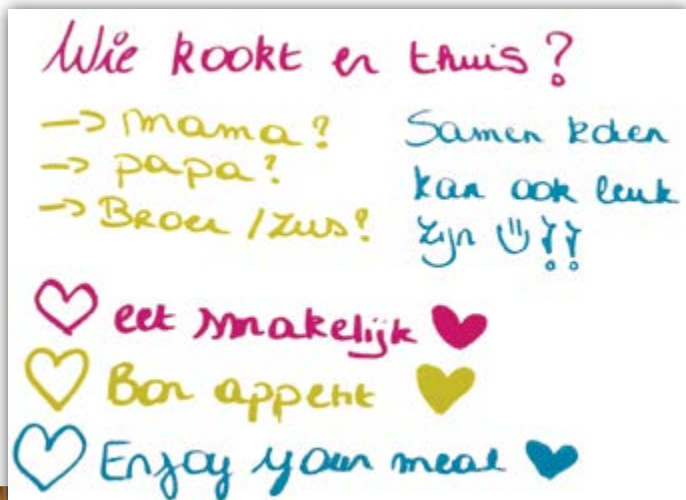 Wie kookt er thuis?
-> mama?
-> papa?
-> Broer / zus?
Samen koken
kan ook leuk
zijn ☺!!
♡ eet smakelijk ♥
♡ Bon appetit ♥
♡ Enjoy your meal ♥